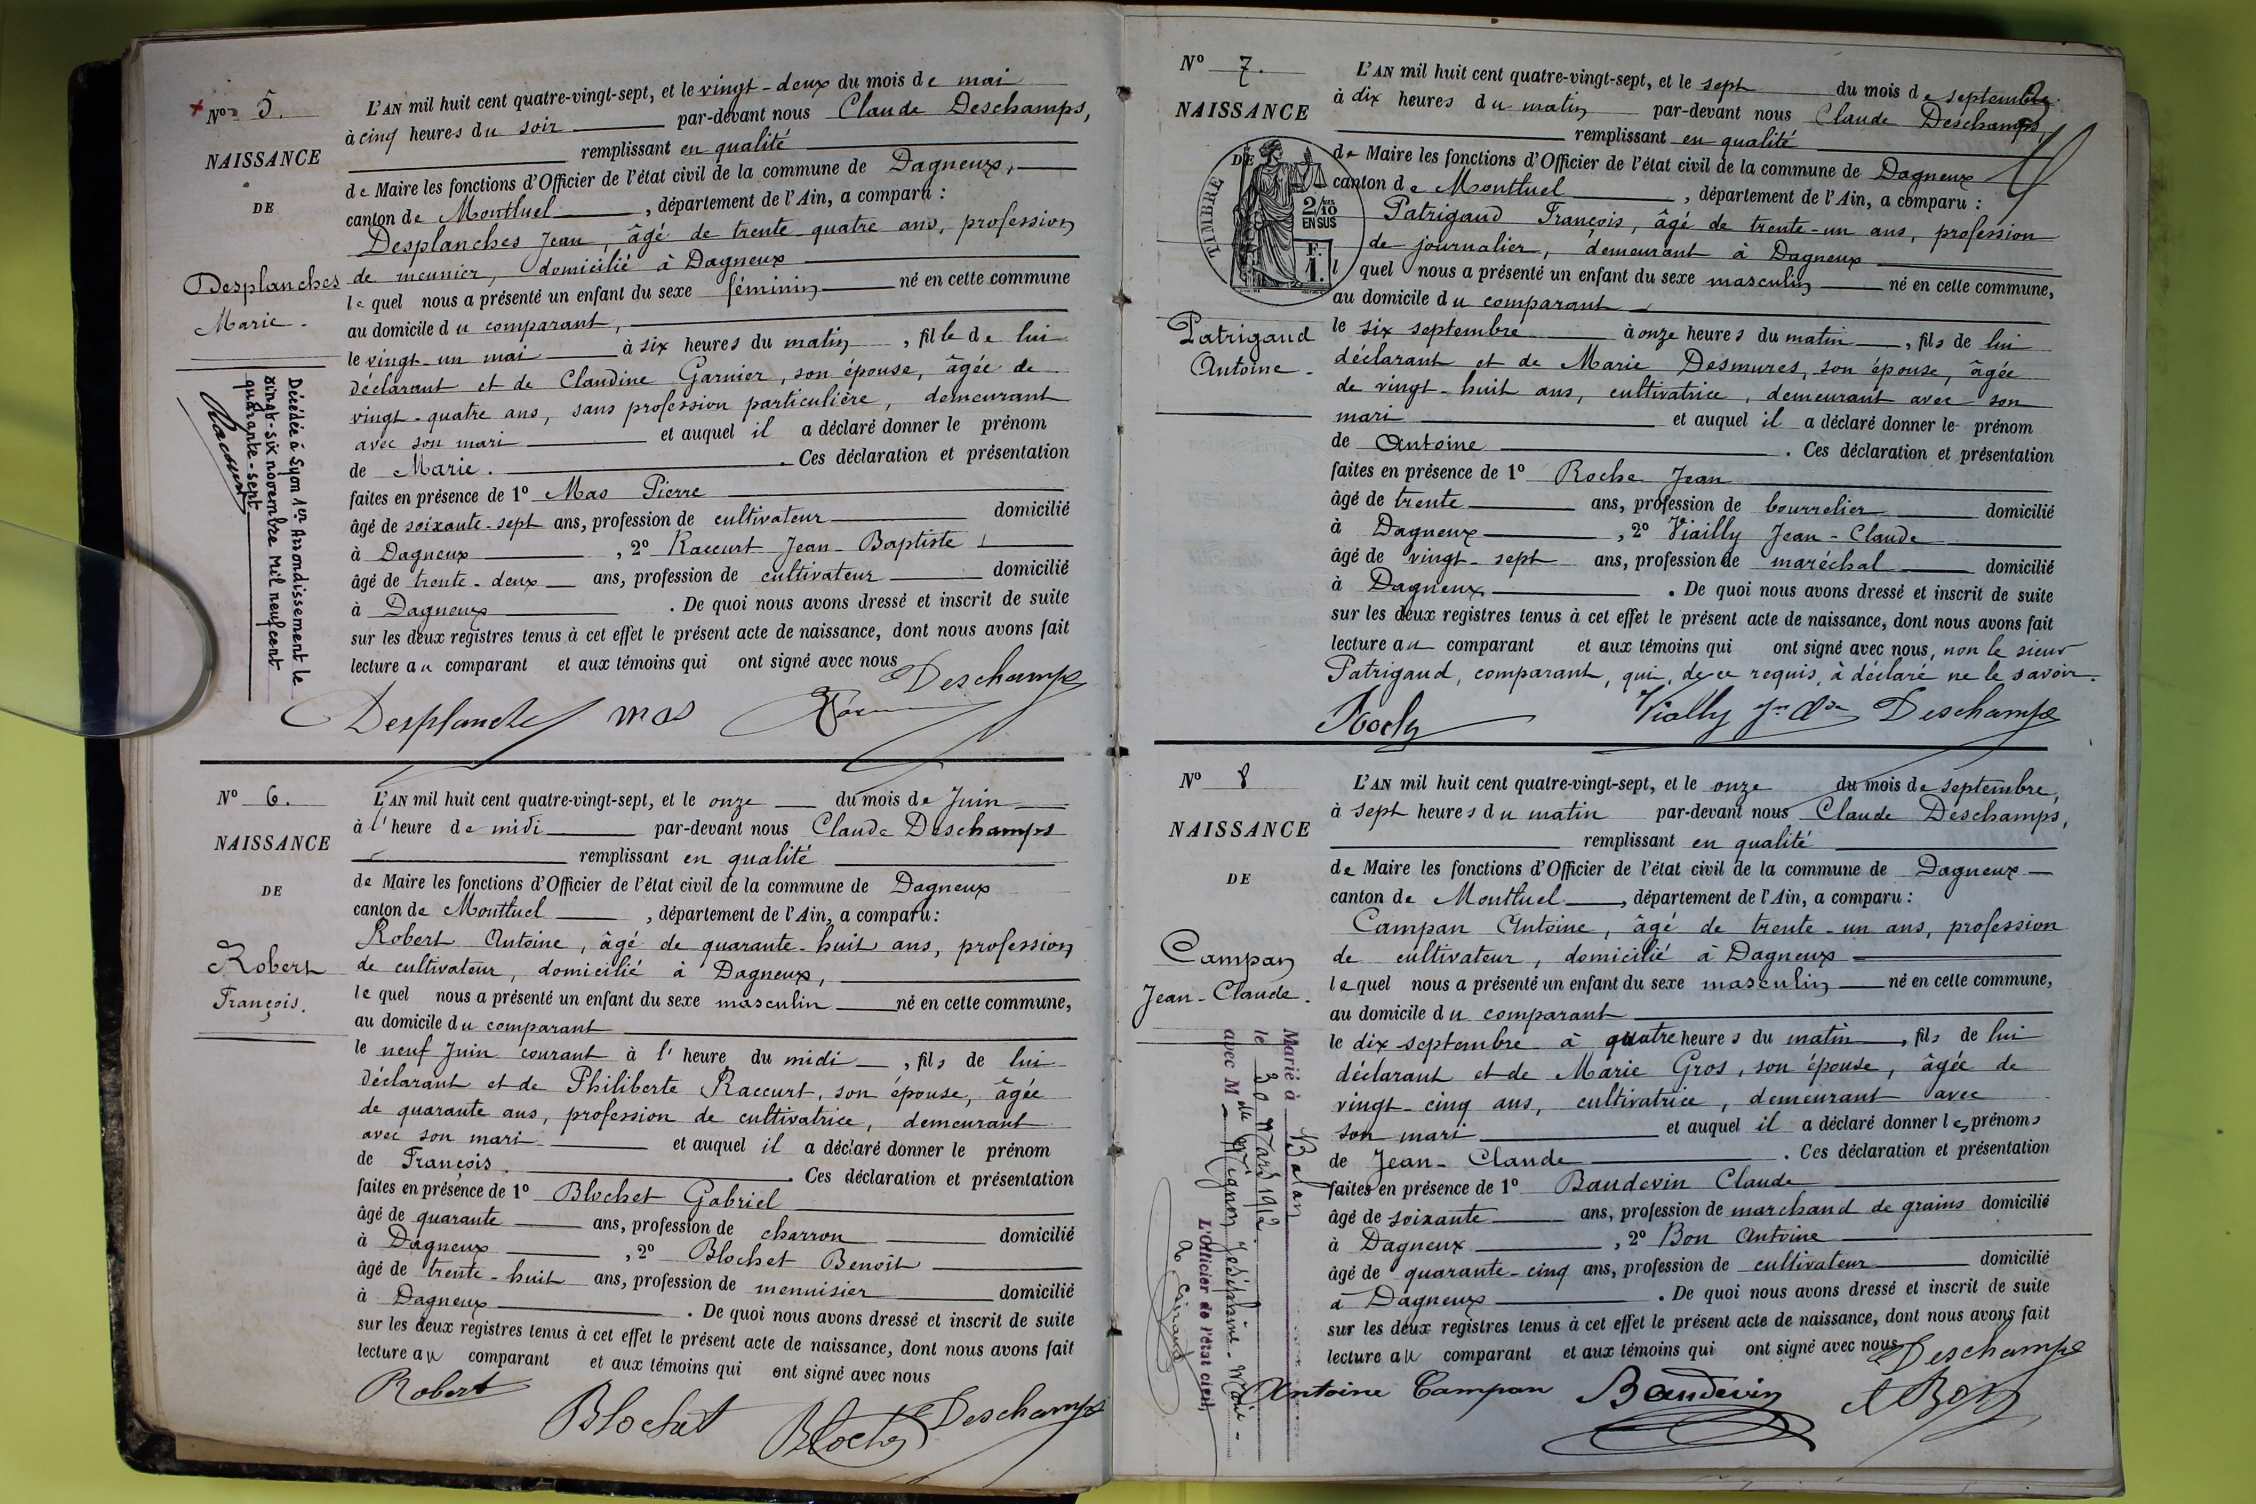 Nº 5.
NAISSANCE
DE
Desplanches
Marie.
Décédée à Lyon 1er Arrondissement le
vingt-six novembre Mil neuf cent
quarante-sept
L'AN mil huit cent quatre-vingt-sept, et le vingt-deux du mois de mai
à cinq heures du soir par-devant nous Claude Deschamps,
remplissant en qualité
de Maire les fonctions d'Officier de l'état civil de la commune de Dagneux,
canton de Montluel, département de l'Ain, a comparu :
Desplanches Jean, âgé de trente quatre ans, profession
de meunier, domicilié à Dagneux
lequel nous a présenté un enfant du sexe féminin né en cette commune
au domicile du comparant,
le vingt-un mai à six heures du matin, fille de lui
déclarant et de Claudine Garnier, son épouse, âgée de
vingt-quatre ans, sans profession particulière, demeurant
avec son mari et auquel il a déclaré donner le prénom
de Marie. Ces déclaration et présentation
faites en présence de 1º Mas Pierre
âgé de soixante-sept ans, profession de cultivateur domicilié
à Dagneux, 2º Raccurt Jean-Baptiste
âgé de trente-deux ans, profession de cultivateur domicilié
à Dagneux. De quoi nous avons dressé et inscrit de suite
sur les deux registres tenus à cet effet le présent acte de naissance, dont nous avons fait
lecture au comparant et aux témoins qui ont signé avec nous
Deschamps
Desplanche mas
Nº 6.
NAISSANCE
DE
Robert
François.
L'AN mil huit cent quatre-vingt-sept, et le onze du mois de Juin
à l'heure de midi par-devant nous Claude Deschamps
remplissant en qualité
de Maire les fonctions d'Officier de l'état civil de la commune de Dagneux
canton de Montluel, département de l'Ain, a comparu :
Robert Antoine, âgé de quarante-huit ans, profession
de cultivateur, domicilié à Dagneux,
lequel nous a présenté un enfant du sexe masculin né en cette commune,
au domicile du comparant
le neuf Juin courant à l'heure du midi, fils de lui
déclarant et de Philiberte Raccurt, son épouse, âgée
de quarante ans, profession de cultivatrice, demeurant
avec son mari et auquel il a déclaré donner le prénom
de François. Ces déclaration et présentation
faites en présence de 1º Blochet Gabriel
âgé de quarante ans, profession de charron domicilié
à Dagneux, 2º Blochet Benoit
âgé de trente-huit ans, profession de menuisier domicilié
à Dagneux. De quoi nous avons dressé et inscrit de suite
sur les deux registres tenus à cet effet le présent acte de naissance, dont nous avons fait
lecture au comparant et aux témoins qui ont signé avec nous
Robert Blochet Blochet Deschamps
Nº 7.
NAISSANCE
DE
TIMBRE
2/10
EN SUS
F.
1.
Patrigaud
Antoine.
L'AN mil huit cent quatre-vingt-sept, et le sept du mois de septembre
à dix heures du matin par-devant nous Claude Deschamps,
remplissant en qualité
de Maire les fonctions d'Officier de l'état civil de la commune de Dagneux
canton de Montluel, département de l'Ain, a comparu :
Patrigaud François, âgé de trente-un ans, profession
de journalier, demeurant à Dagneux
lquel nous a présenté un enfant du sexe masculin né en cette commune,
au domicile du comparant
le six septembre à onze heures du matin, fils de lui
déclarant et de Marie Desmures, son épouse, âgée
de vingt-huit ans, cultivatrice, demeurant avec son
mari et auquel il a déclaré donner le prénom
de Antoine. Ces déclaration et présentation
faites en présence de 1º Roche Jean
âgé de trente ans, profession de bourrelier domicilié
à Dagneux, 2º Viailly Jean-Claude
âgé de vingt-sept ans, profession de maréchal domicilié
à Dagneux. De quoi nous avons dressé et inscrit de suite
sur les deux registres tenus à cet effet le présent acte de naissance, dont nous avons fait
lecture au comparant et aux témoins qui ont signé avec nous, non le sieur
Patrigaud, comparant, qui, de ce requis, à déclaré ne le savoir.
Vially Jn Cde Deschamps
Nº 8
NAISSANCE
DE
Campan
Jean-Claude.
Marié à Balan
le 30 Mars 1912.
avec Mlle Mignon Joséphine-Marie-
L'Officier de l'état civil,
L'AN mil huit cent quatre-vingt-sept, et le onze du mois de septembre,
à sept heures du matin par-devant nous Claude Deschamps,
remplissant en qualité
de Maire les fonctions d'Officier de l'état civil de la commune de Dagneux
canton de Montluel, département de l'Ain, a comparu :
Campan Antoine, âgé de trente-un ans, profession
de cultivateur, domicilié à Dagneux
lequel nous a présenté un enfant du sexe masculin né en cette commune,
au domicile du comparant
le dix septembre à quatre heures du matin, fils de lui
déclarant et de Marie Gros, son épouse, âgée de
vingt-cinq ans, cultivatrice, demeurant avec
son mari et auquel il a déclaré donner les prénoms
de Jean-Claude. Ces déclaration et présentation
faites en présence de 1º Baudevin Claude
âgé de soixante ans, profession de marchand de grains domicilié
à Dagneux, 2º Bon Antoine
âgé de quarante-cinq ans, profession de cultivateur domicilié
à Dagneux. De quoi nous avons dressé et inscrit de suite
sur les deux registres tenus à cet effet le présent acte de naissance, dont nous avons fait
lecture au comparant et aux témoins qui ont signé avec nous
Deschamps
Antoine Campan Baudevin A Bon